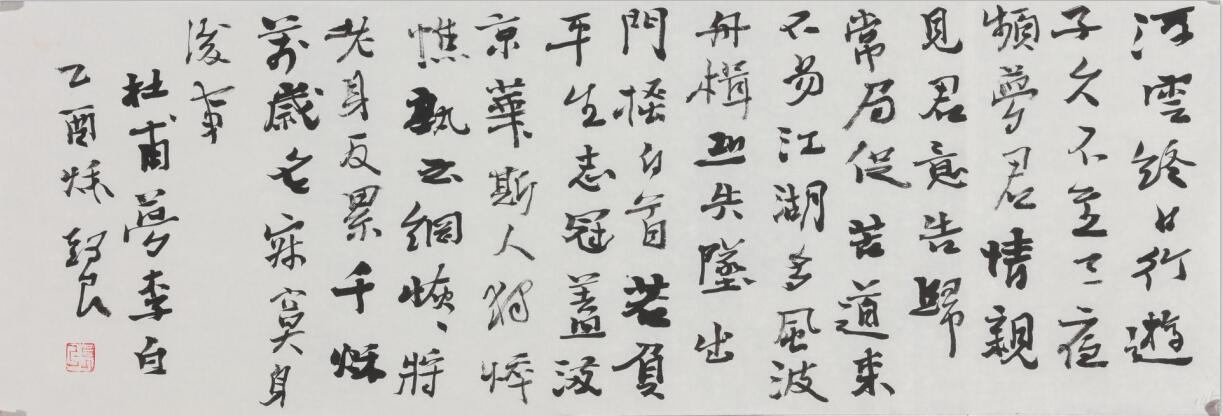 河雲終日行遊
子久不至三夜
頻夢君情親
見君意告歸
常局促苦道來
不易江湖多風波
舟楫恐失墜出
門搔白首若負
平生志冠蓋滿
京華斯人獨悴
憔孰云網恢〻將
老身反累千秋
萬歲名寂寞身
後事
杜甫夢李白
乙酉秋